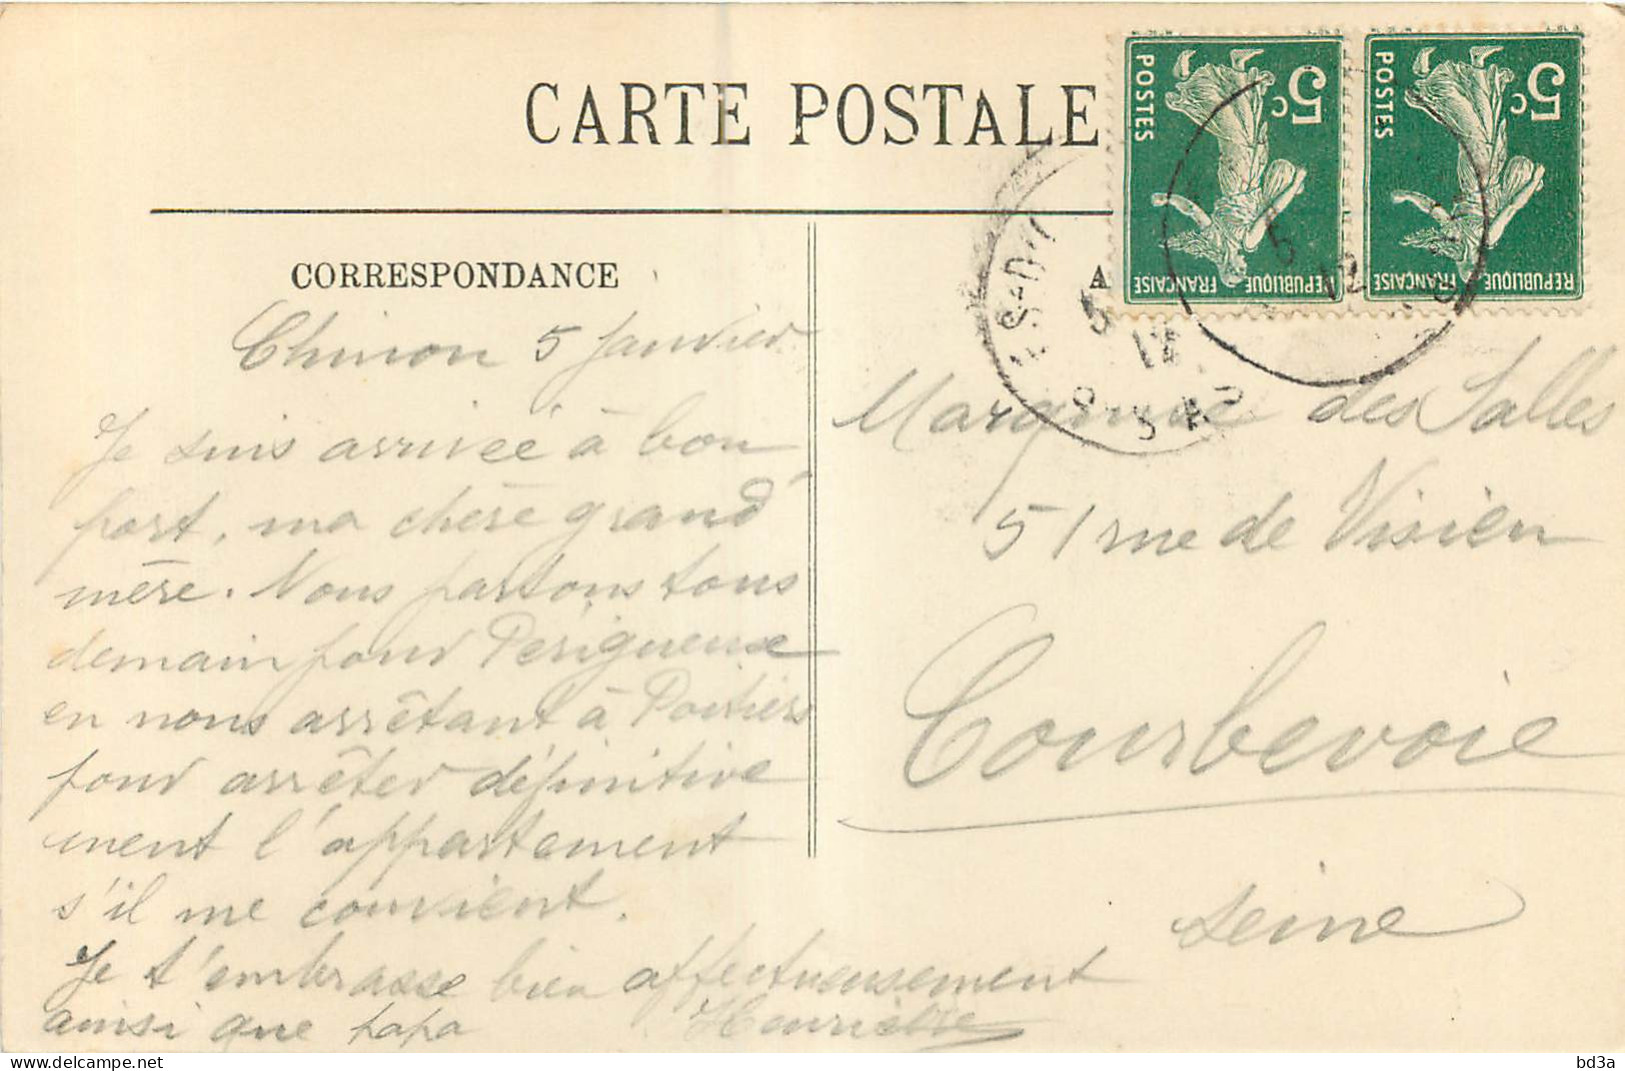 CARTE POSTALE
POSTES
5c
REPUBLIQUE FRANÇAISE
POSTES
5c
REPUBLIQUE FRANÇAISE
5
12
5
12
CORRESPONDANCE
A
Chinon 5 Janvier
Je suis arrivée à bon
port, ma chère grand'
mère. Nous partons tous
demain pour Perigueux
en nous arrêtant à Poitiers
pour arrêter définitive
ment l'appartement
s'il me convient.
Je t'embrasse bien affectueusement
ainsi que papa
Henriette
Marquise des Salles
51 rue de Visien
Courbevoie
Seine
bd3a